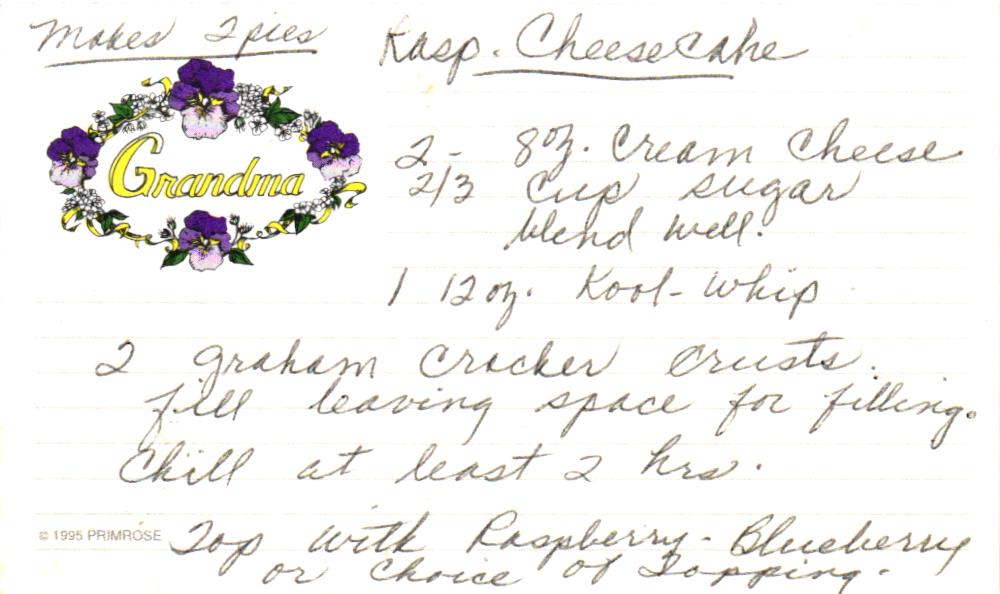 Makes 2 pies
Rasp. Cheesecake
Grandma
2 - 8 oz. Cream Cheese
2/3 Cup sugar
blend well.
1 12 oz. Kool-Whip
2 graham cracker crusts.
fill leaving space for filling.
Chill at least 2 hrs.
© 1995 PRIMROSE
Top with Raspberry - Blueberry
or choice of Topping.